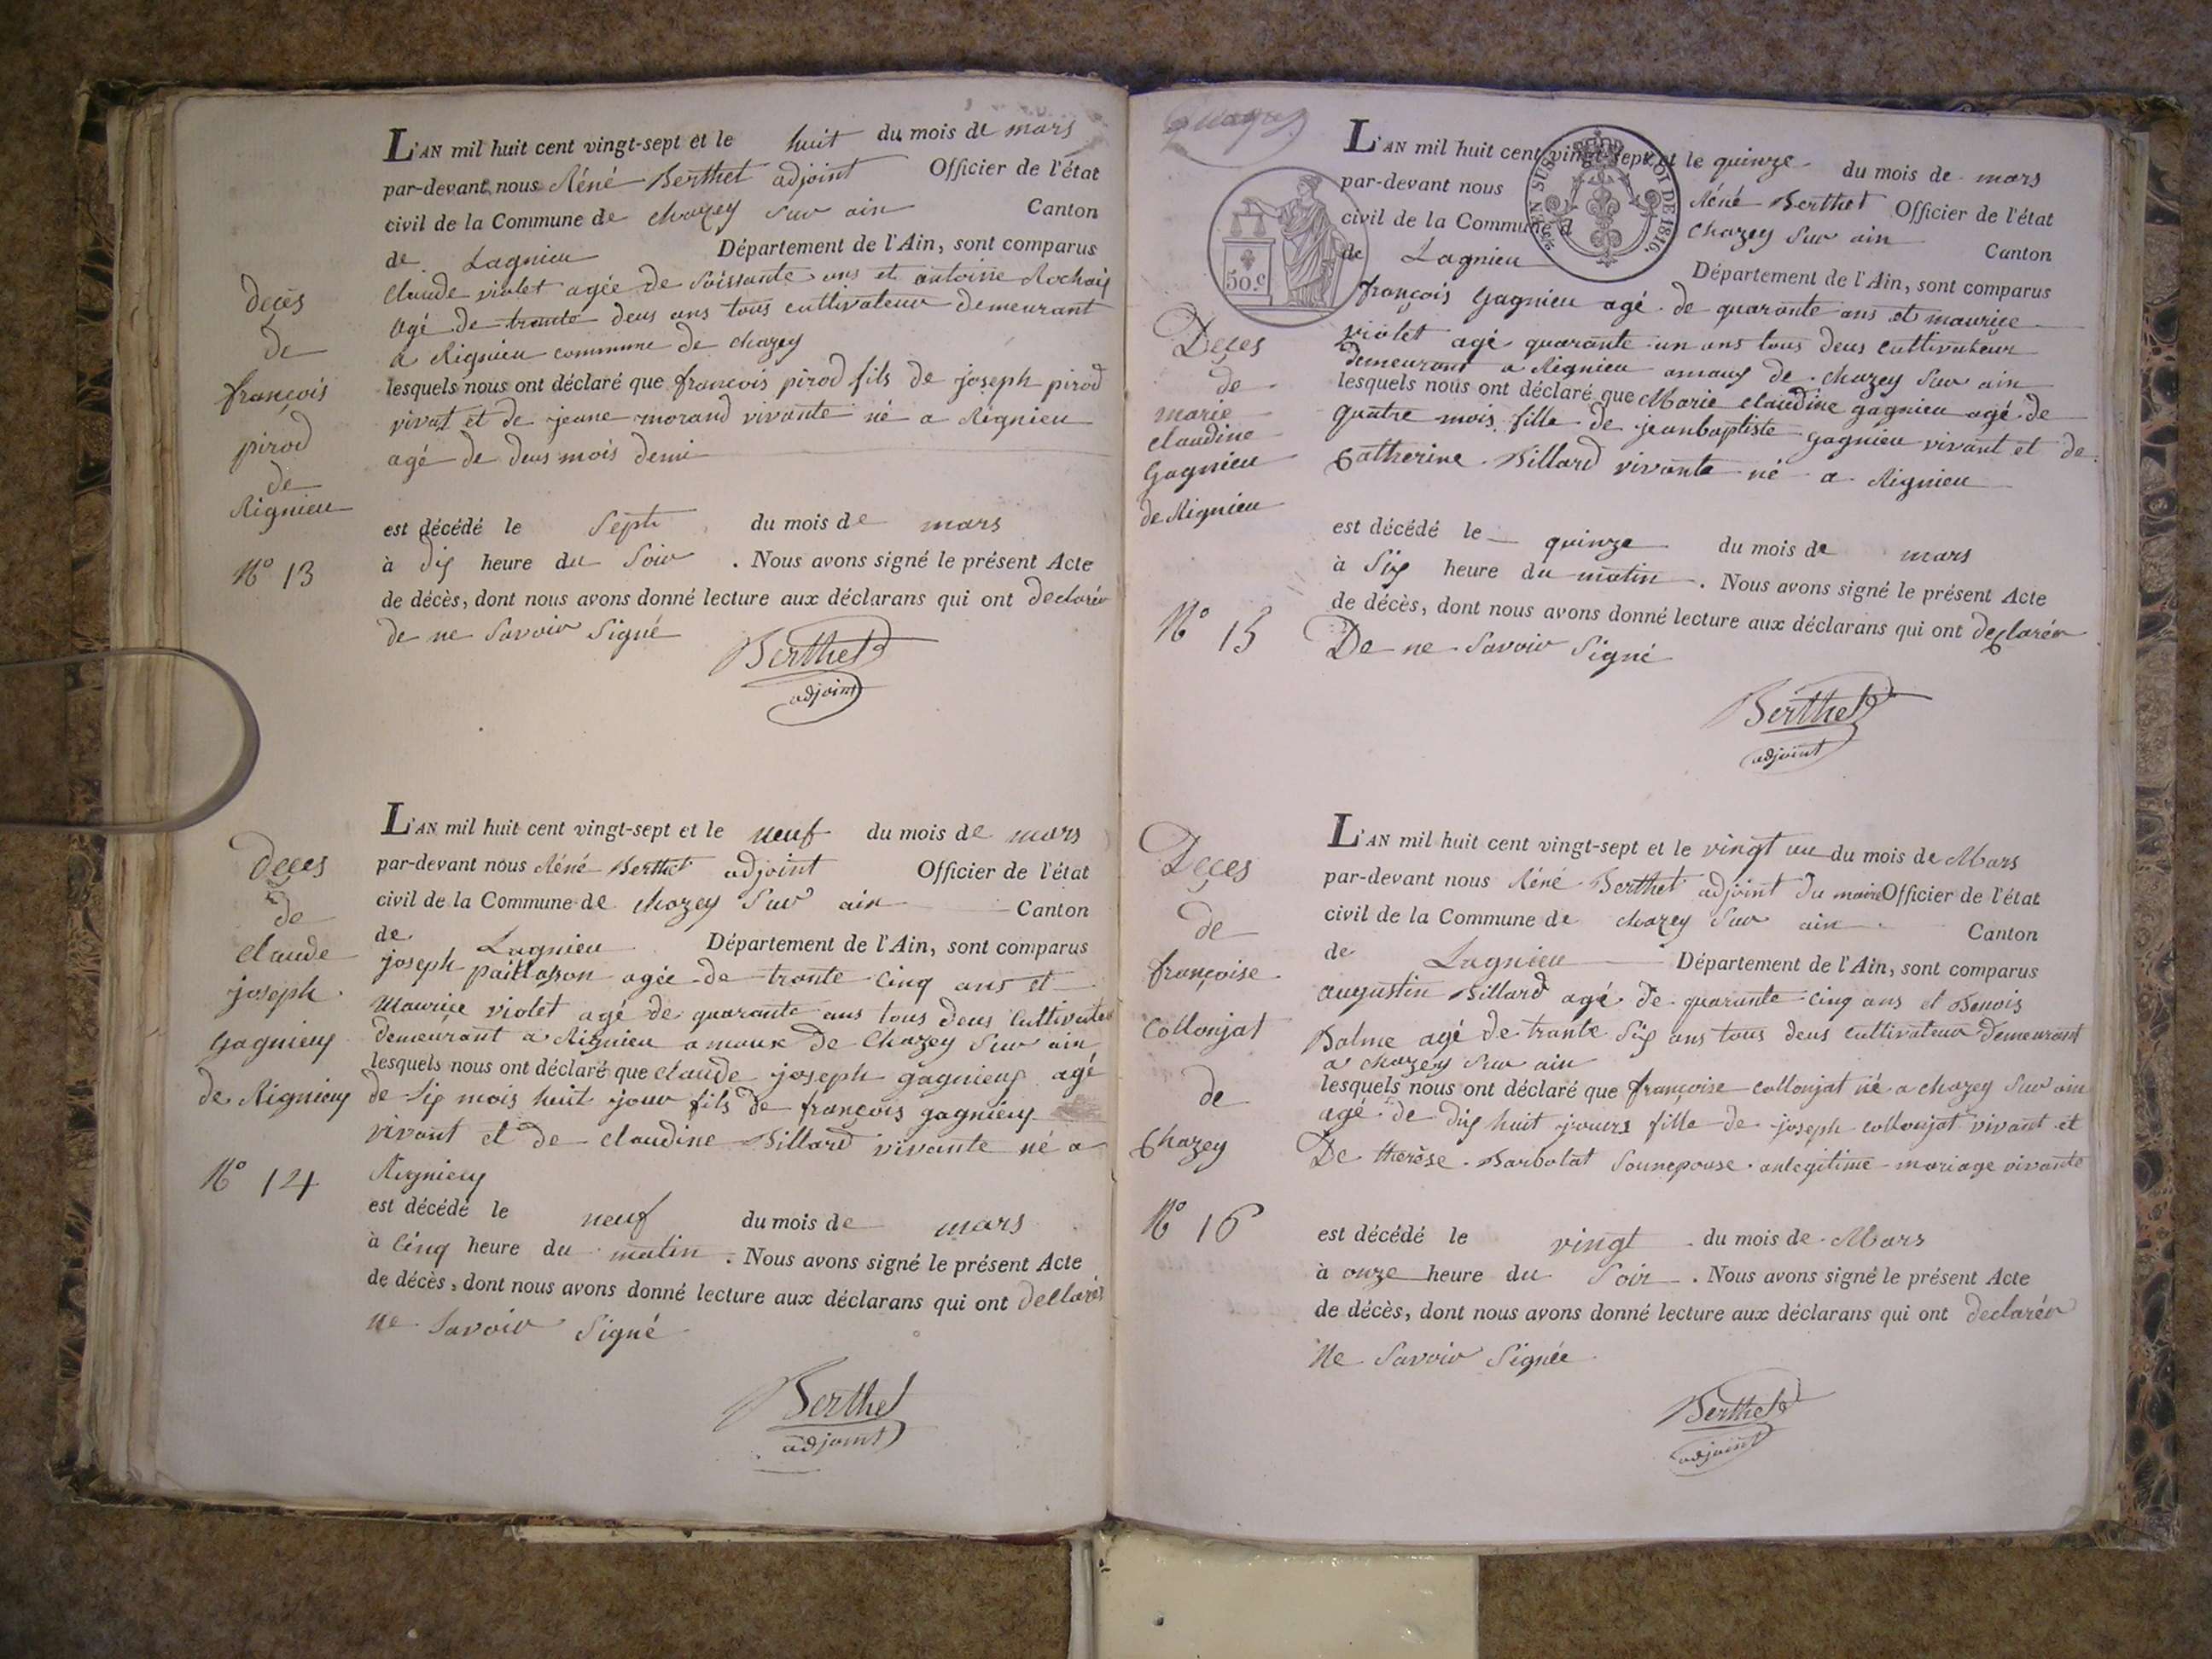 L'AN mil huit cent vingt-sept et le huit du mois de mars
par-devant nous Réné Berthet adjoint Officier de l'état
civil de la Commune de chazey sur ain Canton
de Lagnieu Département de l'Ain, sont comparus
Claude violet agée de soissante ans et antoine Rochas
agé de trante deus ans tous cultivateur demeurant
a Rignieu commune de chazey
lesquels nous ont déclaré que françois pirod fils de joseph pirod
vivat et de jeane morand vivante né a Rignieu
agé de deus mois demi
est décédé le sept du mois de mars
à dix heure du soir . Nous avons signé le présent Acte
de décès, dont nous avons donné lecture aux déclarans qui ont declarér
de ne savoir signé
Berthet
adjoint
decès
de
françois
pirod
de
Rignieu
N° 13
L'AN mil huit cent vingt-sept et le neuf du mois de mars
par-devant nous Réné Berthet adjoint Officier de l'état
civil de la Commune de chazey sur ain Canton
de Lagnieu Département de l'Ain, sont comparus
joseph paillasson agée de trante cinq ans et
Maurice violet agé de quarante ans tous deus cultivateur
demeurant a Rignieu amaux de Chazey sur ain
lesquels nous ont déclaré que claude joseph gagnieux agé
de six mois huit jour fils de françois gagnieux
vivant et de claudine Billard vivante né a
Rignieux
est décédé le neuf du mois de mars
à cinq heure du matin . Nous avons signé le présent Acte
de décès, dont nous avons donné lecture aux déclarans qui ont declarér
ne savoir signé
Berthet
adjoint
deces
de
claude
joseph
gagnieux
de Rignieux
N° 14
L'AN mil huit cent vingt-sept et le quinze du mois de mars
par-devant nous Réné Berthet Officier de l'état
civil de la Commune d chazey sur ain Canton
de Lagnieu Département de l'Ain, sont comparus
françois gagnieu agé de quarante ans et maurice
violet agé quarante un ans tous deus cultivateur
demeurant a Rignieu amaux de chazey sur ain
lesquels nous ont déclaré que Marie claudine gagnieu agé de
quatre mois fille de jeanbaptiste gagnieu vivant et de
Catherine Billard vivante né a Rignieu
est décédé le quinze du mois de mars
à six heure du matin . Nous avons signé le présent Acte
de décès, dont nous avons donné lecture aux déclarans qui ont declarér
De ne savoir signé
Berthet
adjoint
50.c
LOI DE 1816.
Deces
de
marie
claudine
Gagnieu
de Rignieu
N° 15
L'AN mil huit cent vingt-sept et le vingt un du mois de Mars
par-devant nous Réné Berthet adjoint du maire Officier de l'état
civil de la Commune de chazey sur ain Canton
de Lagnieu Département de l'Ain, sont comparus
augustin Billard agé de quarante cinq ans et Benois
Balme agé de trante six ans tous deus cultivateur demeurant
a chazey sur ain
lesquels nous ont déclaré que françoise collonjat né a chazey sur ain
agé de dix huit jours fille de joseph collonjat vivant et
De therèse Barbolat sonnepouse anlegitime mariage vivante
est décédé le vingt du mois de Mars
à onze heure du soir . Nous avons signé le présent Acte
de décès, dont nous avons donné lecture aux déclarans qui ont declarér
Ne savoir signée
Berthet
adjoint
Deces
de
françoise
Collonjat
de
Chazey
N° 16